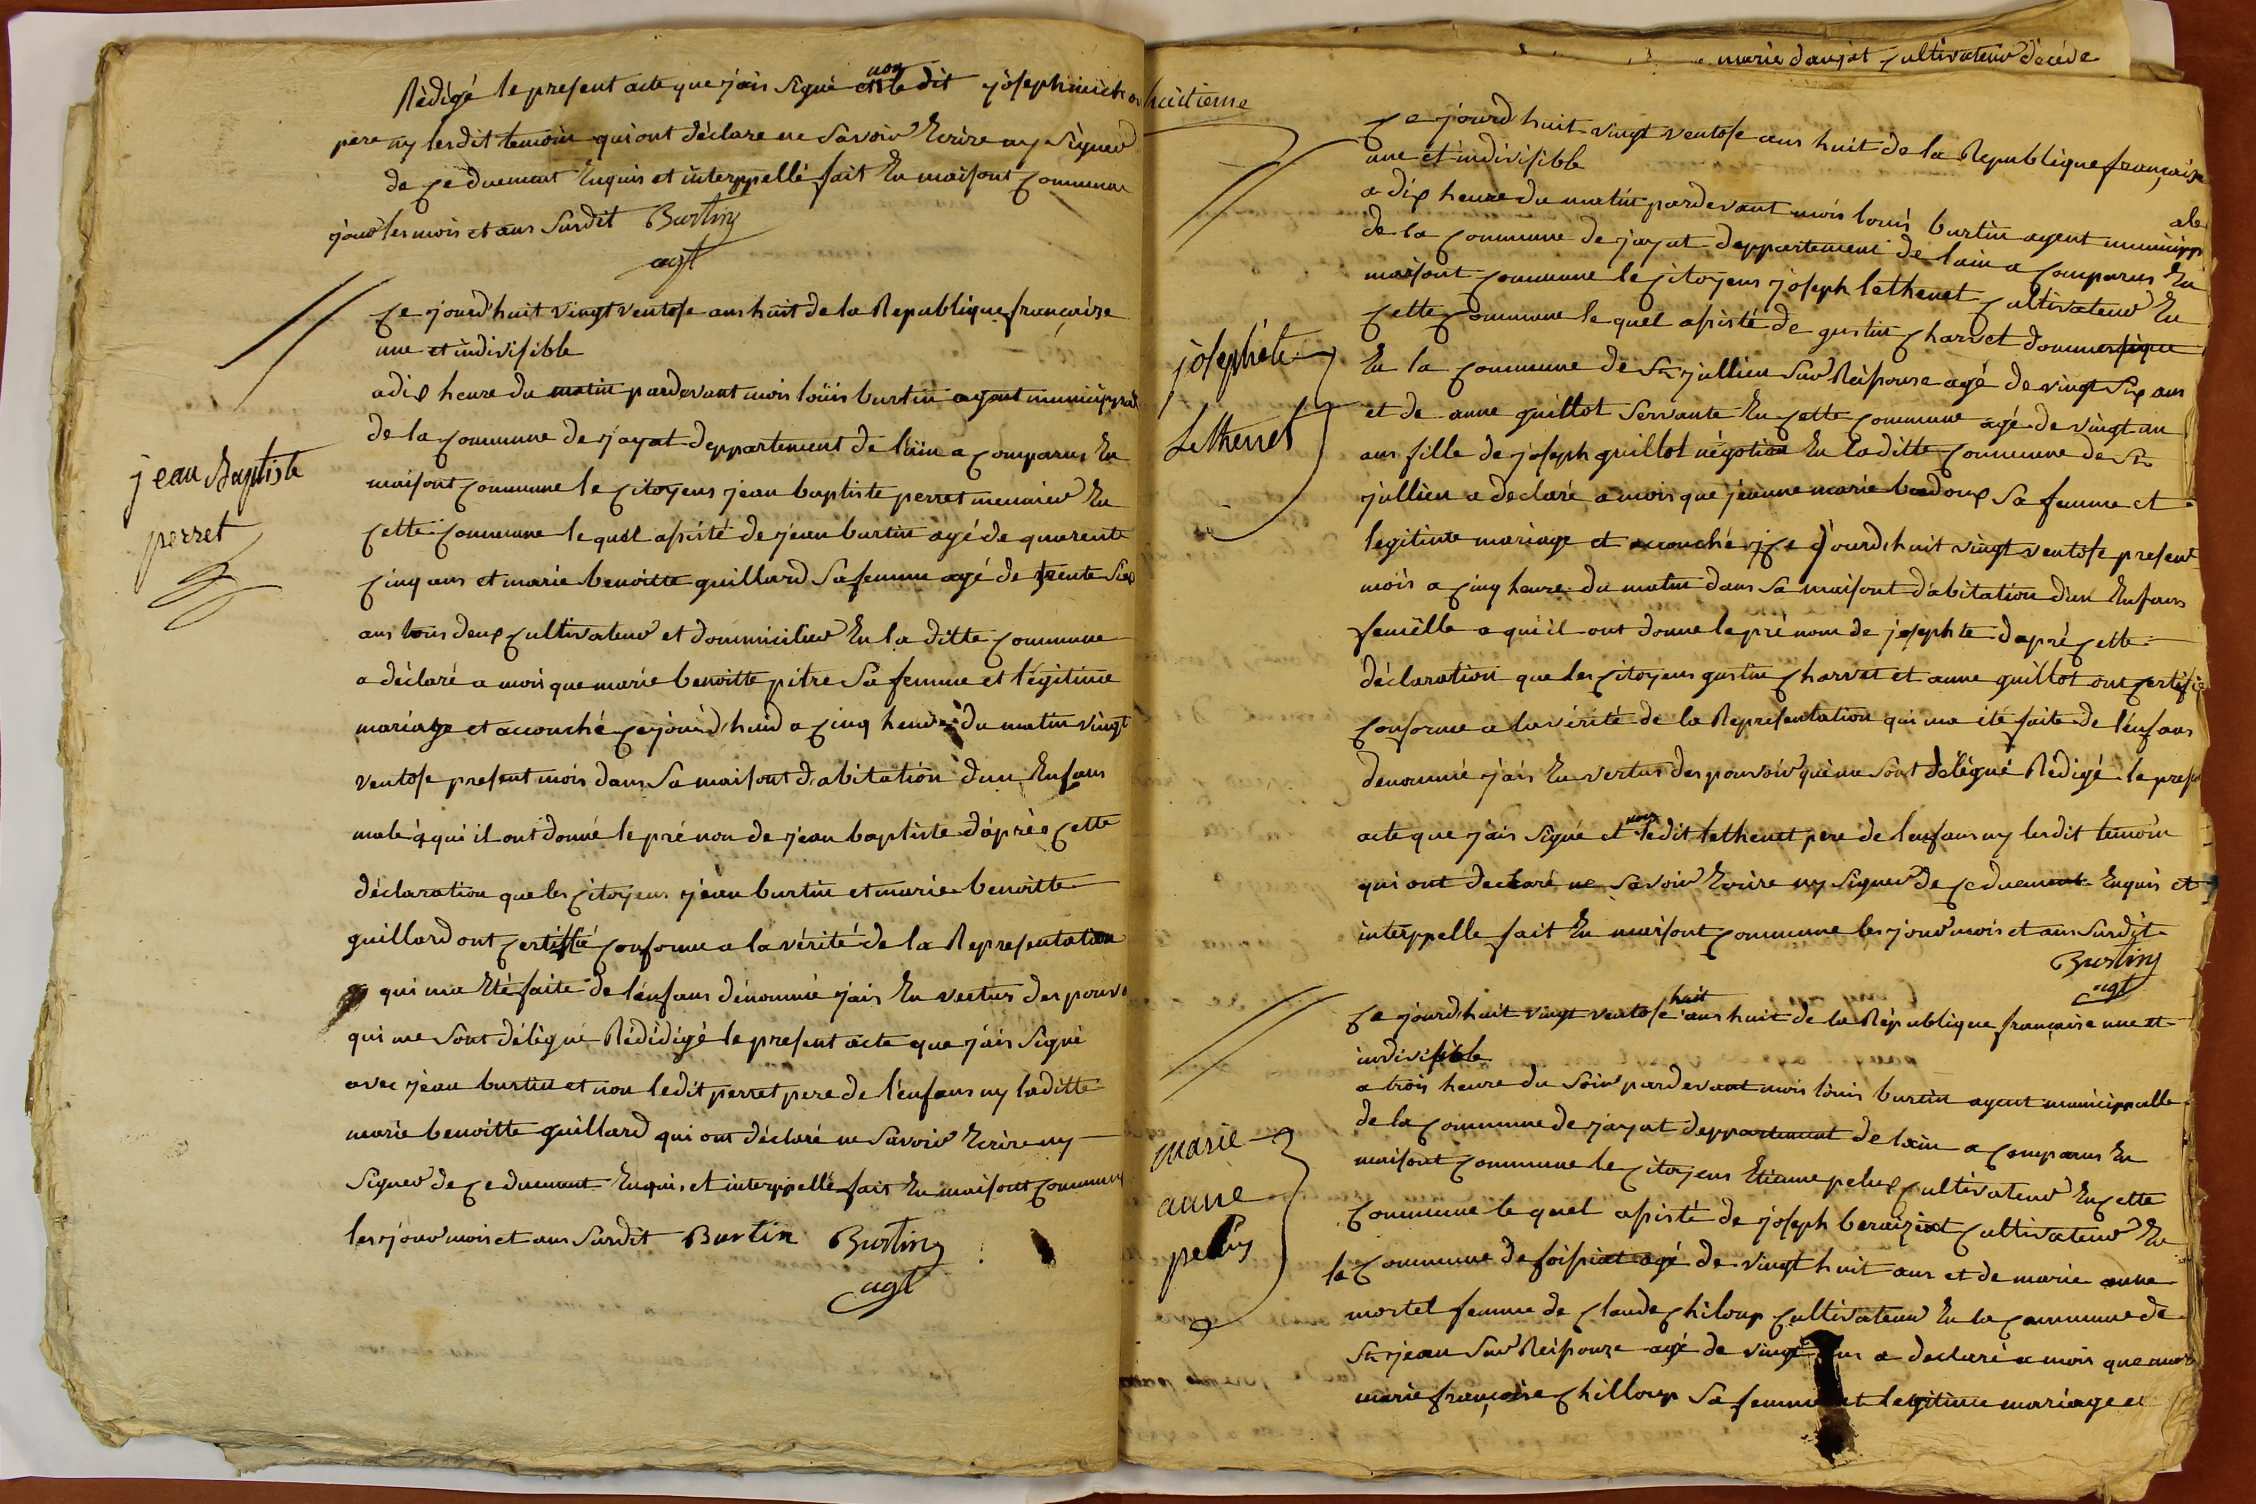 Rédigé le present acte que j'ais signé et non ledit joseph michon
pere ny lesdit temoin qui ont déclare ne savoir Ecrire ny signer
de ce duement Enquis et interppellé fait En maisont commune
jour les mois et ans susdit Burtin
agt
ce jourd'huit vingt ventose ans huit de la Republique française
une et indivisible
a dix heure du matin pardevant mois louis burtin agent municippal
de la commune de jayat deppartement de l'ain a comparus En
maisont commune le citoyens jean baptiste perret meunier En
cette commune lequel assisté de jean burtin agé de quarente
cinq ans et marie benoitte guillard sa femme agé de trente six
ans tous deux cultivateur et dommicilier En la ditte commune
a déclaré a mois que marie benoitte pitre sa femme et légitime
mariage et accouché cejourd'huid a cinq heure du matin vingt
ventose present mois dans sa maisont d'abitation d'un Enfans
male a qui il ont donné le pré non de jean baptiste d'après cette
déclaration que les citoyens jean burtin et marie benoitte
guillard ont certiffié conforme a la vérité de la Representation
qui ma Eté faite de l'enfans dénommé j'ais En vertus des pouvo
qui me sont délégué Rédidigé le present acte que j'ais signé
avec jean burtin et non ledit perret pere de l'enfans ny laditte
marie benoitte guillard qui ont déclaré ne savoir Ecrire ny
signer de ce duement Enquis et interppellé fait En maisont commune
les jour mois et ans susdit Burtin Burtin
agt
jean Baptiste
perret
marie daujat cultivateur décéde
huitieme
ce jourd huit vingt ventose ans huit de la Republique française
une et indivisible
a dix heure du matin pardevant mois louis burtin agent municippale
de la commune de jayat deppartement de lain a comparus En
maisont commune le citoyens joseph lethenet cultivateur En
cette commune le quel assisté de gustin charvet dommestique
En la commune de St jullien sur Reisouse agé de vingt six ans
et de anne guillot servante En cette commune agé de vingt un
ans fille de joseph guillot négotian En la ditte commune de St
jullien a declaré a mois que jeanne marie badoux sa femme et
legitime mariage et accouché ce jourd'huit vingt ventose present
mois a cinq heure du matin dans sa maisont d'abitation d'un Enfans
femélle a qui il ont donne le pré nom de josephte d'apré cette
déclaration que les citoyens gustin charvet et anne guillot ont certifié
conforme a la vérité de la Representation qui ma été faite de l'enfans
denommé j'ais En vertus des pouvoir qui me sont délégué Rédigé le prese
acte que j'ais signé et non ledit lethenet pere de l'enfans ny lesdit temoin
qui ont declaré ne savoir Ecrire ny signer de ce duement Enquis et
interppelle fait En maisont commune les jour mois et ans susdit
Burtin
agt
josephéte
Lethenet
ce jourd'huit vingt huit ventose ans huit de la République française une et
indivisible
a trois heure du soir pardevant mois louis burtin agent municippalle
de la commune de jayat deppartement de lain a comparus En
maisont commune le citoyens Etienne pelus cultivateur En cette
commune le quel assisté de joseph beraiziat cultivateur En
la commune de foissiat agé de vingt huit ans et de marie anne
mortel femme de claude chiloup cultivateur En la commune de
St jean sur Reisouze agé de vingt ans a declaré a mois que
marie françoise chilloup sa femme et legitime mariage et
marie
anne
pelus